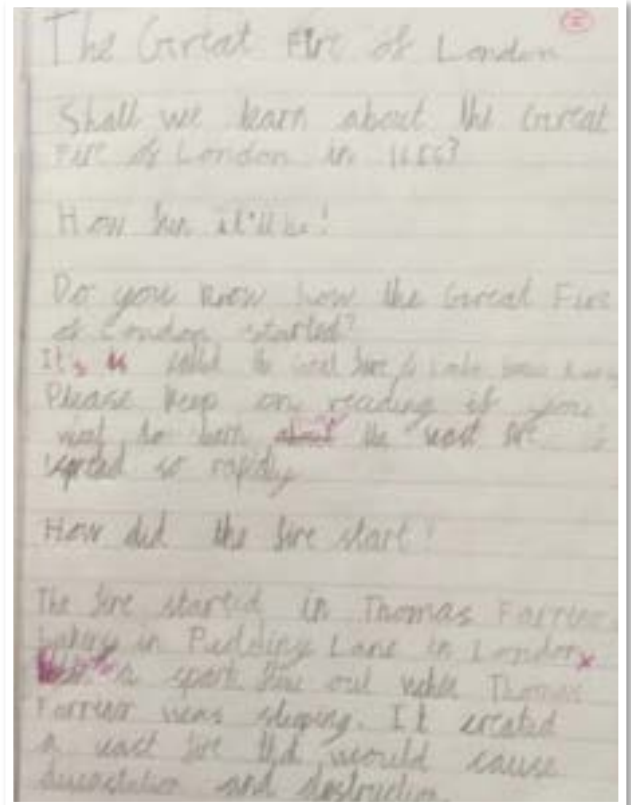 The Great Fire of London
Shall we learn about the Great
Fire of London in 1666?
How fun it'll be!
Do you know how the Great Fire
of London started?
It's
Please keep on reading if you
want to learn about the vast fire
spread so rapidly
How did the fire start?
The fire started in Thomas Farriner
bakery in Pudding Lane in London
a spark flew out while Thomas
Farriner was sleeping. It created
a vast fire that would cause
devastation and destruction